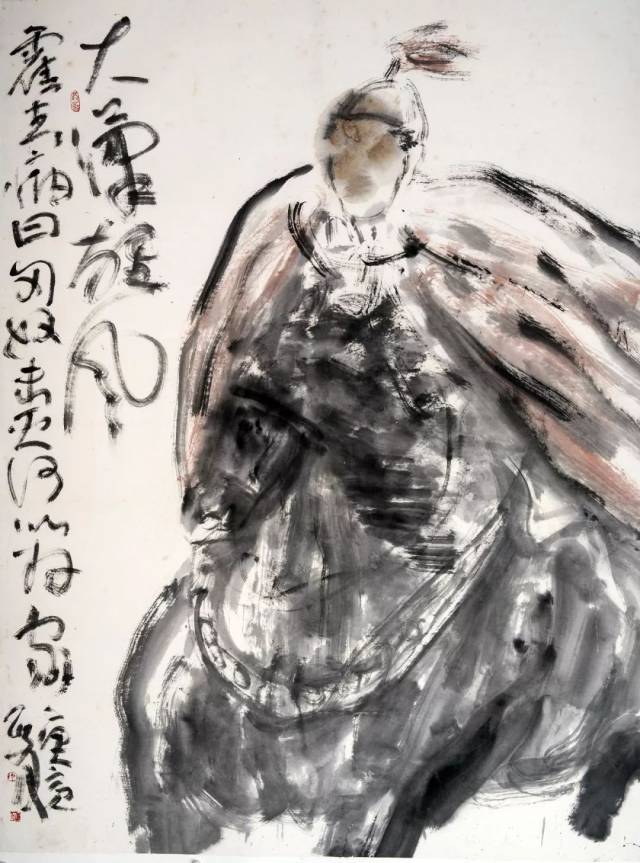 大漠雄风
霍去病曰匈奴未灭何以为家